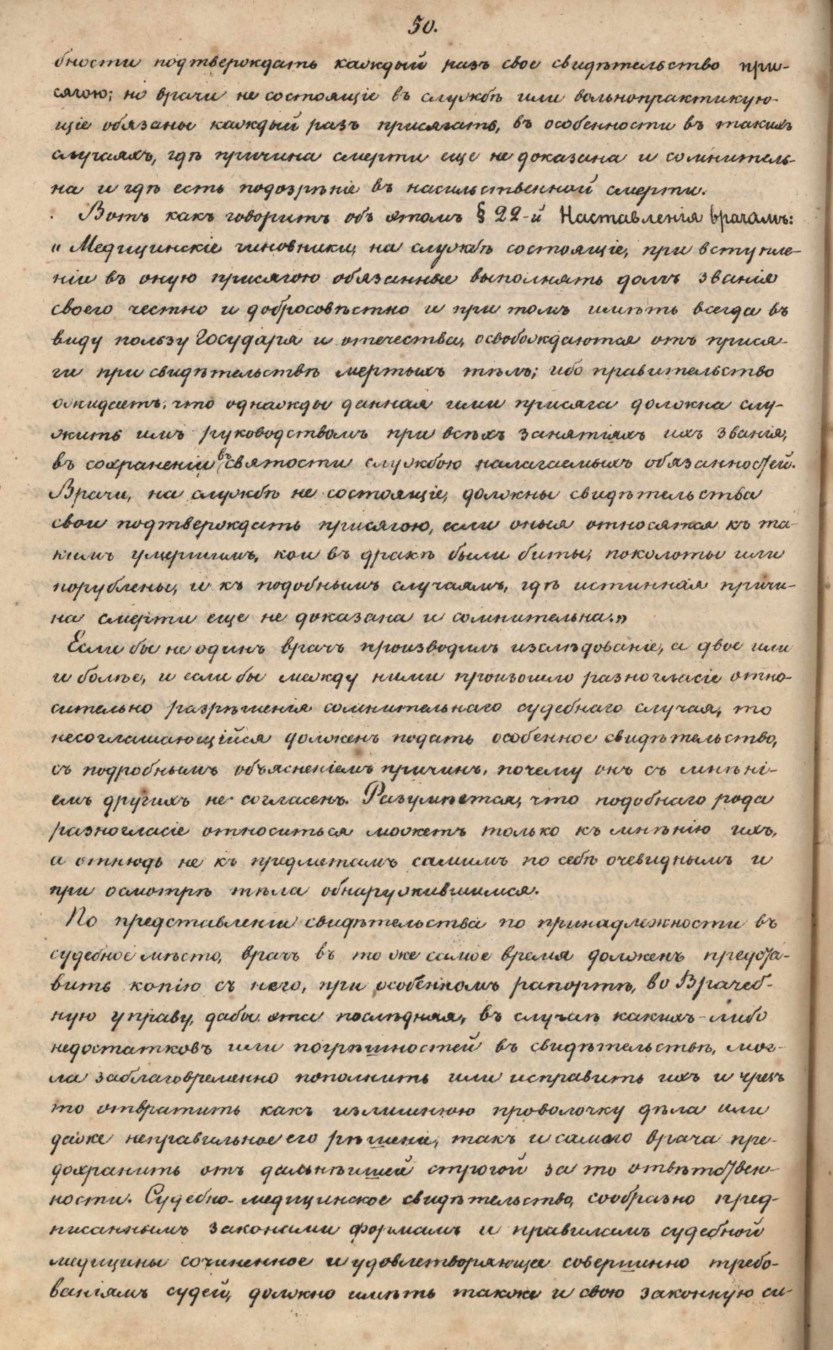 50.
бности подтверождать каждый разъ свое свидѣтельство при-
сягою; но врачи не состоящіе въ службѣ или вольнопрактикую-
щіе обязаны каждый разъ присягать, въ особенности въ такихъ
случаяхъ, гдѣ причина смерти еще не доказана и сомнитель-
на и гдѣ есть подозрѣніе въ насильственной смерти.
Вотъ какъ говоритъ объ этомъ § 22-й Наставленія врачамъ:
„Медицинскіе чиновники, на службѣ состоящіе, при вступле-
ніи въ оную присягою обязанные выполнять долгъ званія
своего честно и добросовѣстно и при томъ имѣть всегда въ
виду пользу Государя и отечества, освобождаются отъ прися-
ги при свидѣтельствѣ мертвыхъ тѣлъ; ибо правительство
ожидаетъ, что однажды данная ими присяга должна слу-
жить имъ руководствомъ при всѣхъ занятіяхъ ихъ званія,
въ сохраненіи въ святости службою налагаемыхъ обязанностей.
Врачи, на службѣ не состоящіе, должны свидѣтельства
свои подтверождать присягою, если оныя относятся къ та-
кимъ умершимъ, кои въ дракѣ были биты, поколоты или
порублены, и къ подобнымъ случаямъ, гдѣ истинная причи-
на смерти еще не доказана и сомнительна.„
Если бы не одинъ врачъ производилъ изслѣдованіе, а двое или
и болѣе, и если бы между ними произошло разногласіе отно-
сительно разрѣшенія сомнительнаго судебнаго случая, то
несоглашающійся долженъ подать особенное свидѣтельство,
съ подробнымъ объясненіемъ причинъ, почему онъ съ мнѣні-
емъ другихъ не согласенъ. Разумѣется, что подобнаго рода
разногласіе относиться можетъ только къ мнѣнію ихъ,
а отнюдь не къ предметамъ самимъ по себѣ очевиднымъ и
при осмотрѣ тѣла обнаружившимся.
По представленіи свидѣтельства по принадлежности въ
судебное мѣсто, врачъ въ то же самое время долженъ предста-
вить копію съ него, при особенномъ рапортѣ, во Врачеб-
ную управу, дабы эта послѣдняя, въ случаѣ какихъ-либо
недостатковъ или погрѣшностей въ свидѣтельствѣ, мог-
ла заблаговременно пополнить или исправить ихъ и чрезъ
то отвратить какъ излишнюю проволочку дѣла или
даже неправильное его рѣшеніе, такъ и самого врача пре-
дохранить отъ дальнѣйшей строгой за то отвѣтствен-
ности. Судебно-медицинское свидѣтельство, сообразно пред-
писаннымъ законами формамъ и правиламъ судебной
медицины сочиненное и удовлетворяющее совершенно требо-
ваніямъ судей, должно имѣть также и свою законную си-